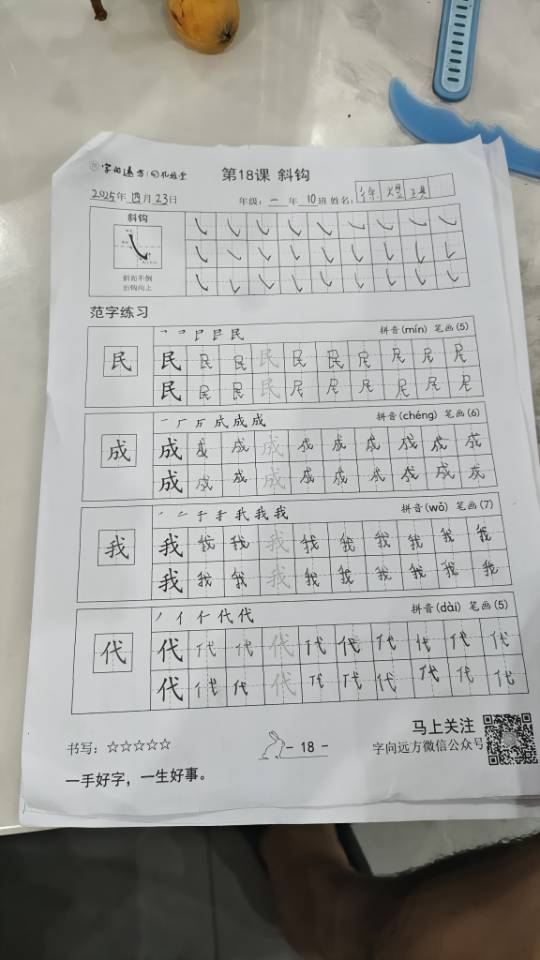 字向远方
第18课 斜钩
2025年 四月23日 年级：一 年 10班 姓名：
斜钩
斜而不倒
出钩向上
范字练习
拼音(mín) 笔画(5)
民 民 民 民 民 民 民 民 民 民 民
民 民 民 民 民 民 民 民 民 民
成成成
拼音(chéng) 笔画(6)
成 成 成 成 成 成 成 成 成 成 成
成 成 成 成 成 成 成 成 成 成
我我我
拼音(wǒ) 笔画(7)
我 我 我 我 我 我 我 我 我 我 我
我 我 我 我 我 我 我 我 我 我
代代
拼音(dài) 笔画(5)
代 代 代 代 代 代 代 代 代 代 代
代 代 代 代 代 代 代 代 代 代
书写：☆☆☆☆☆
- 18 -
马上关注
字向远方微信公众号
一手好字，一生好事。